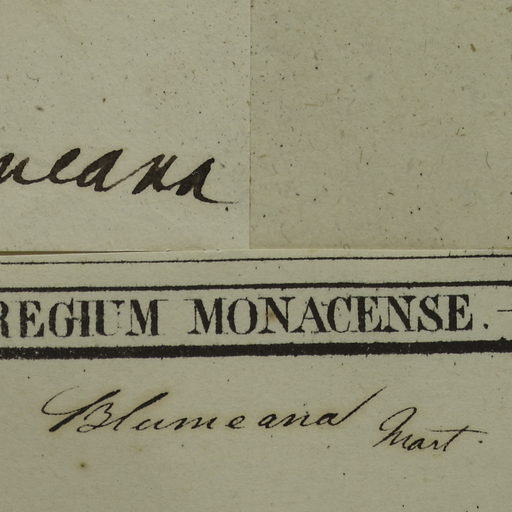 meana
REGIUM MONACENSE.—
Blumeana Mart.